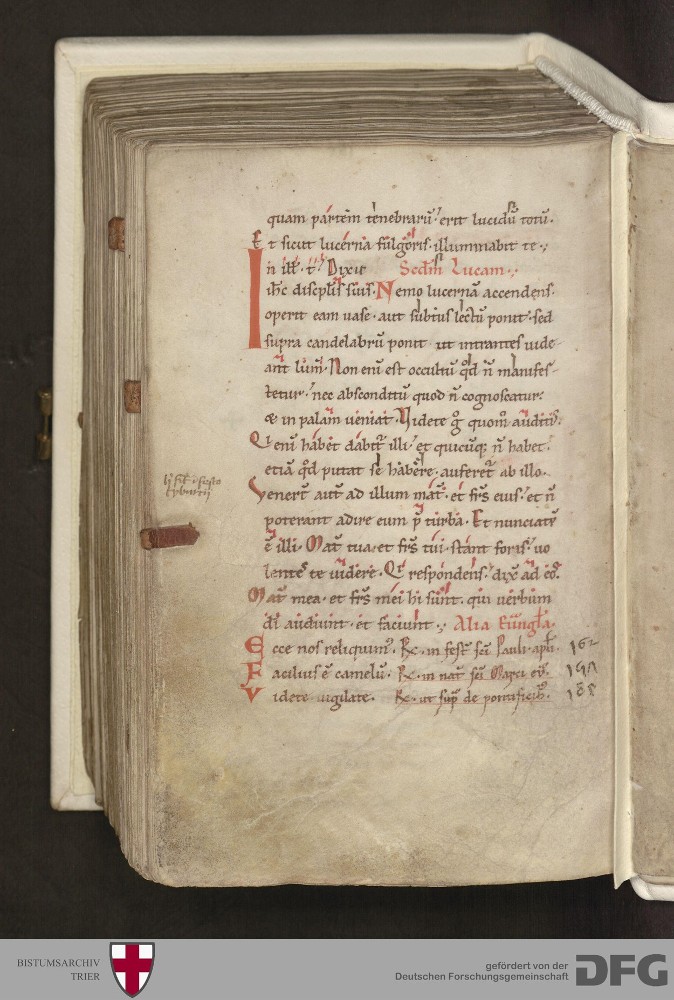 quam partem tenebrarū. erit lucidū totū.
Et sicut lucerna fulgoris. illuminabit te.
In ill̄. t̄. Dixit Scdm̄ Lucam.
ih̄c discipl̄is suis. Nemo lucernā accendens.
operit eam uase. aut subtus lectū ponit. sed
supra candelabrū ponit ut intrantes uide
ant lum̄. Non enī est occultū qd̄ n̄ manifes
tetur. nec absconditū quod n̄ cognoscatur.
& in palam ueniat. Videte g̊ quom̄ auditis.
Qͥ enī habet dabit᷑ illi. et quicūq; n̄ habet.
etiā qd̄ putat se habere. auferet᷑ ab illo.
Venert̄ aut̄ ad illum mat̄. et frs̄ eius. et n̄
poterant adire eum p̄ turba. Et nunciatū
ē illi. Mat̄ tua. et frs̄ tui. stant foris. uo
lentes te uidere. Qͥ respondens. dix̄ ad eos.
Mat̄ mea. et frs̄ mei hi sunt. qui uerbum
dī audiunt. et faciunt. Alia Eūngl̄a.
Ecce nos reliquim᷒. R. in fest̄ scī Pauli. apl̄i. 162
Facilius ē camelū. R. in nat̄ scī Marci
Videte uigilate. R. ut sup̄ de pontificib᷒. 188